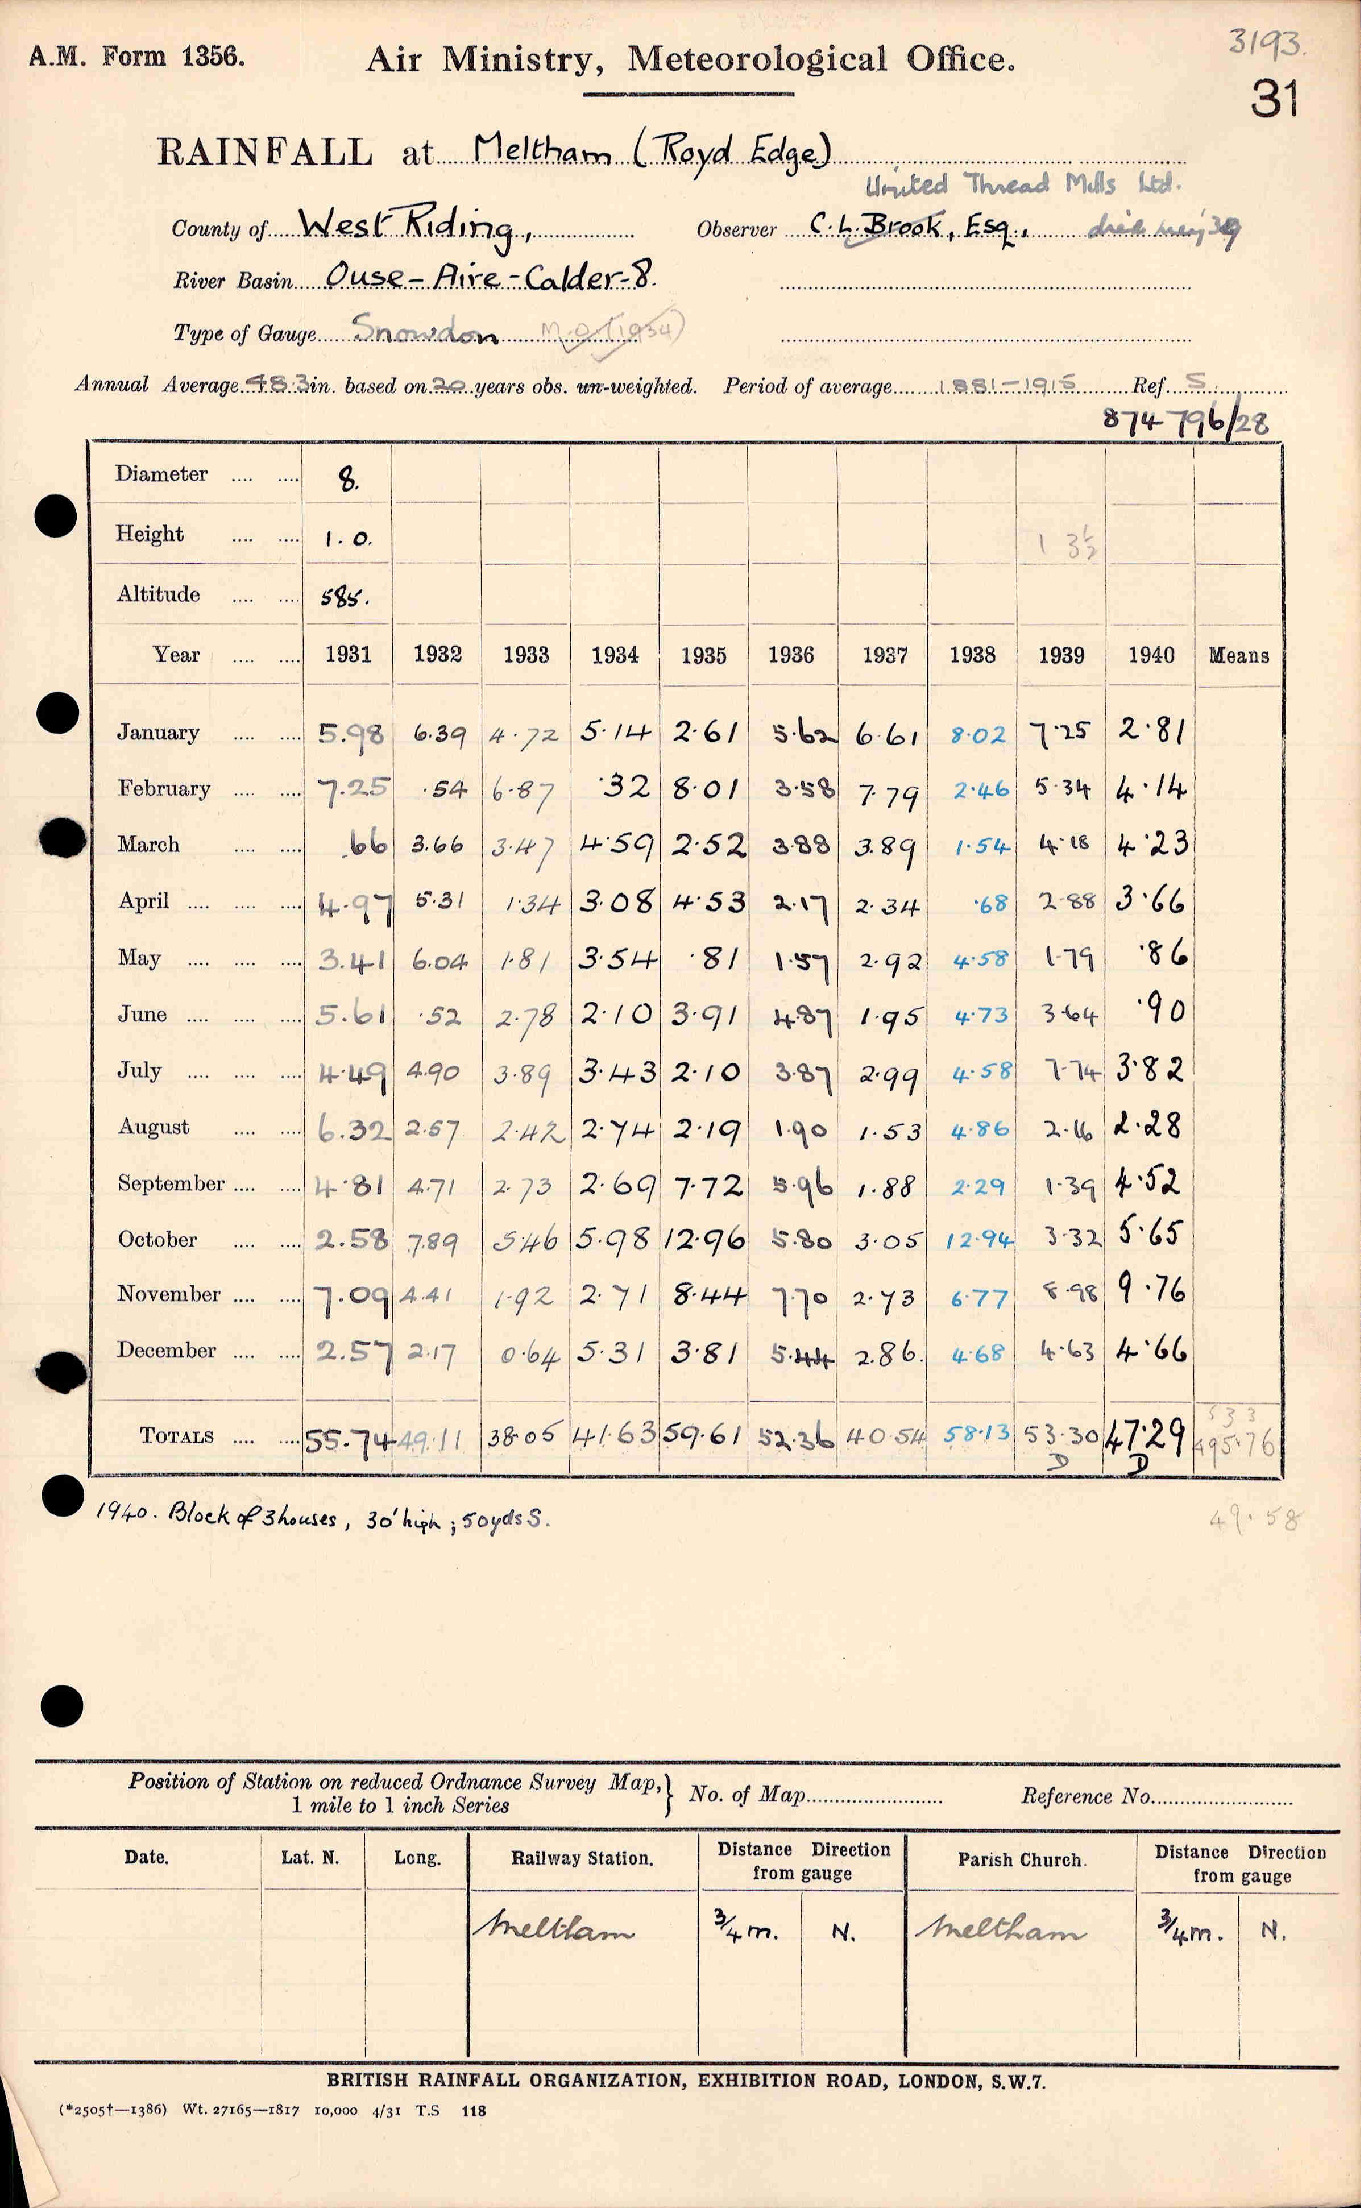 3193.
A.M. Form 1356. Air Ministry, Meteorological Office.
31
RAINFALL at Meltham (Royd Edge)
United Thread Mills Ltd.
County of West Riding, Observer C. L. Brook, Esq., died May '39
River Basin Ouse-Aire-Calder-8.
Type of Gauge Snowdon M.O. (1934)
Annual Average 48.3 in. based on 20 years obs. un-weighted. Period of average 1881-1915 Ref. S.
874 796/28
Diameter 8.
Height 1. 0. 1 3½
Altitude 585.
Year 1931 1932 1933 1934 1935 1936 1937 1938 1939 1940 Means
January 5.98 6.39 4.72 5.14 2.61 5.62 6.61 8.02 7.25 2.81
February 7.25 .54 6.87 .32 8.01 3.58 7.79 2.46 5.34 4.14
March .66 3.66 3.47 4.59 2.52 3.88 3.89 1.54 4.18 4.23
April 4.97 5.31 1.34 3.08 4.53 2.17 2.34 .68 2.88 3.66
May 3.41 6.04 1.81 3.54 .81 1.57 2.92 4.58 1.79 .86
June 5.61 .52 2.78 2.10 3.91 4.87 1.95 4.73 3.64 .90
July 4.49 4.90 3.89 3.43 2.10 3.87 2.99 4.58 7.74 3.82
August 6.32 2.57 2.42 2.74 2.19 1.90 1.53 4.86 2.16 2.28
September 4.81 4.71 2.73 2.69 7.72 5.96 1.88 2.29 1.39 4.52
October 2.58 7.89 5.46 5.98 12.96 5.80 3.05 12.94 3.32 5.65
November 7.09 4.41 1.92 2.71 8.44 7.70 2.73 6.77 8.98 9.76
December 2.57 2.17 0.64 5.31 3.81 5.44 2.86. 4.68 4.63 4.66
533
TOTALS 55.74 49.11 38.05 41.63 59.61 52.36 40.54 58.13 53.30 47.29 495.76
D D
1940. Block of 3 houses, 30' high; 50yds S.
49.58
Position of Station on reduced Ordnance Survey Map, } No. of Map Reference No.
1 mile to 1 inch Series
Date. Lat. N. Long. Railway Station. Distance Direction from gauge Parish Church. Distance Direction from gauge
Meltham ¾ m. N. Meltham ¾ m. N.
BRITISH RAINFALL ORGANIZATION, EXHIBITION ROAD, LONDON, S.W.7.
(*2505†—1386) Wt. 27165—1817 10,000 4/31 T.S 118